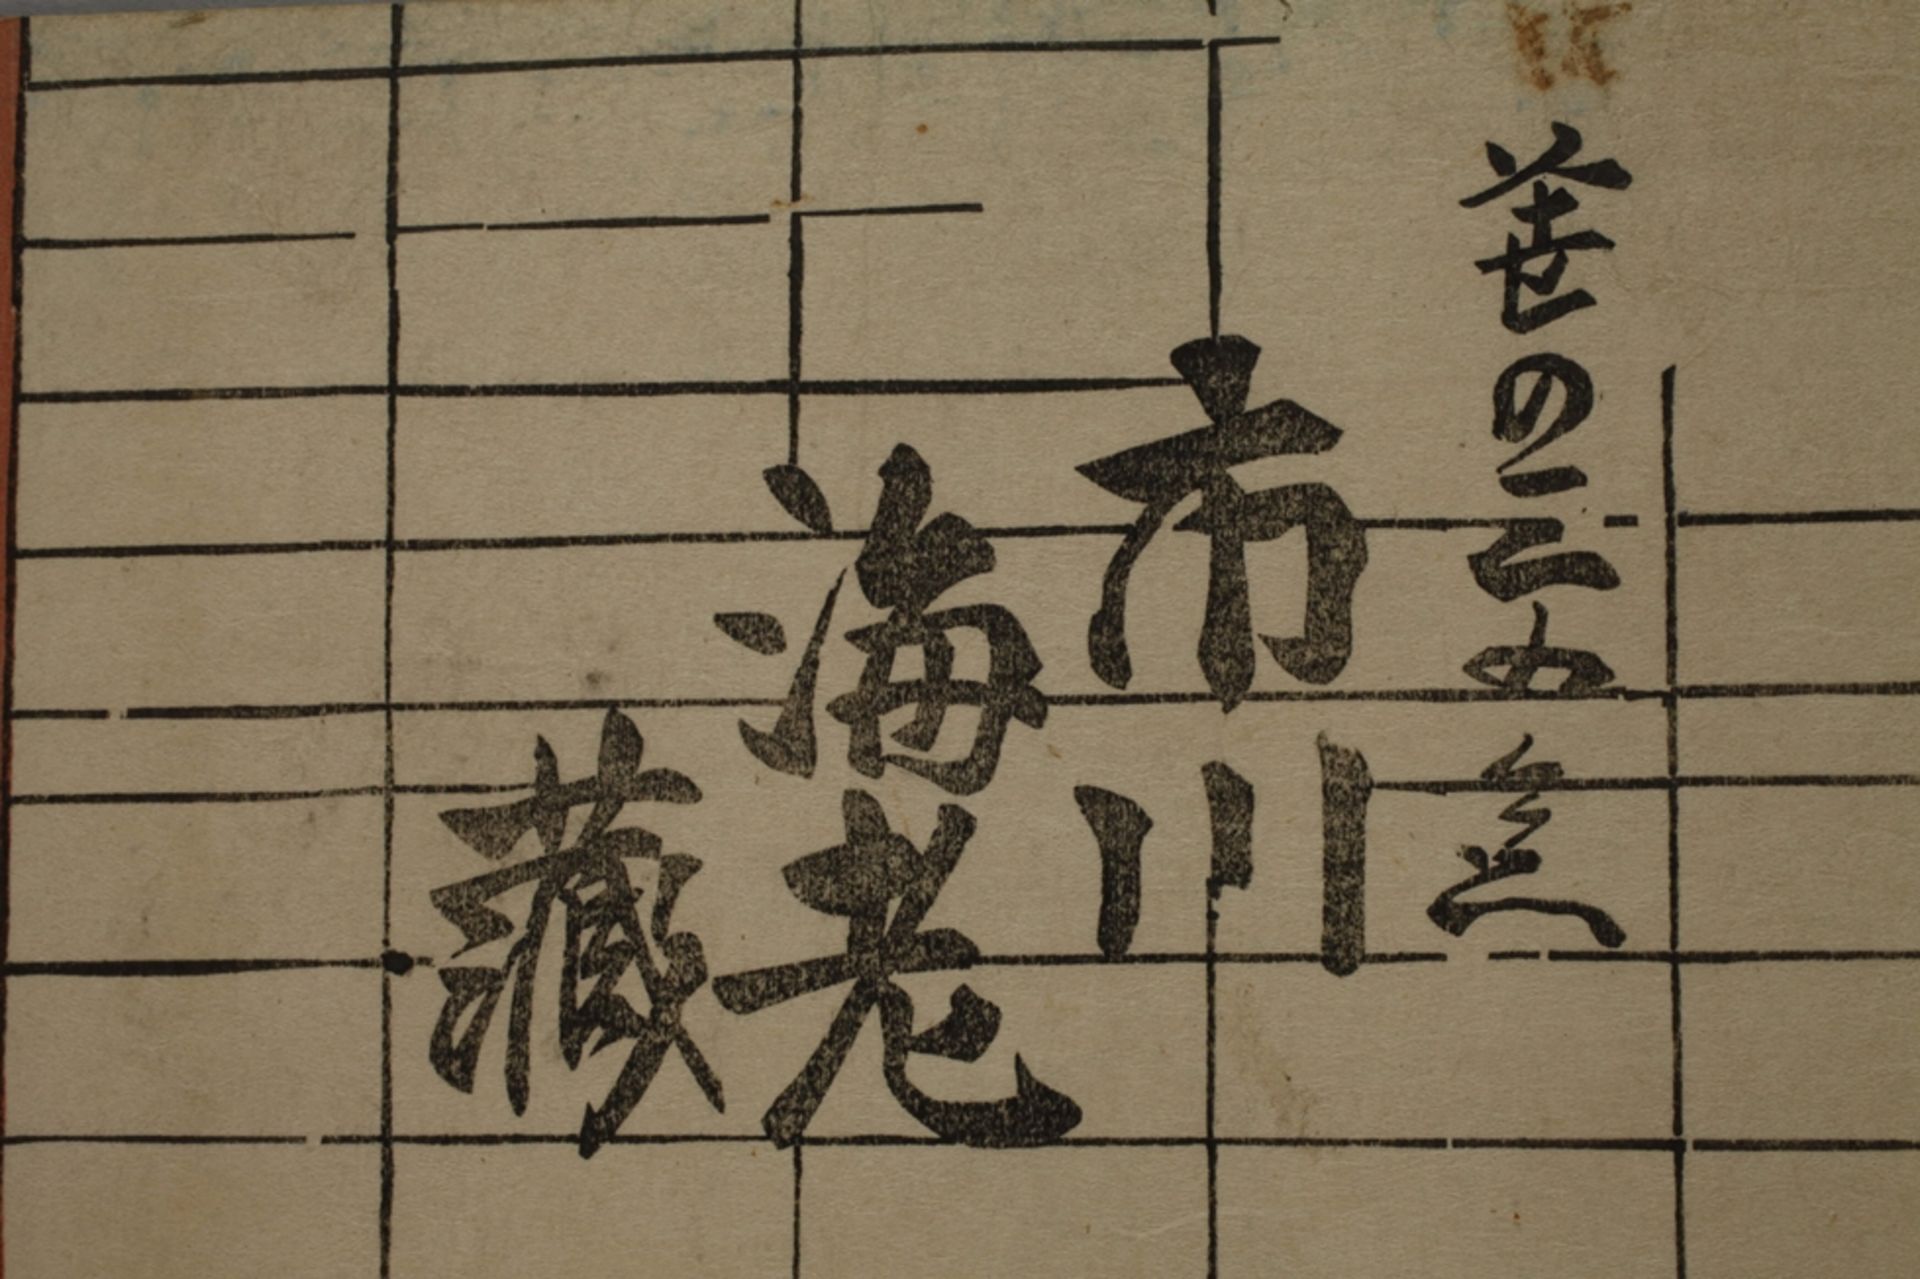 笹の三五兵衛
市川
海老
藏